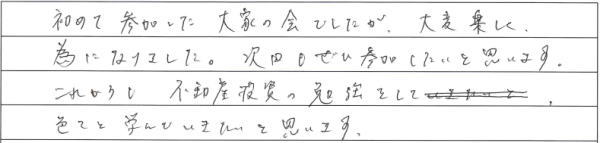 初めて参加した大家の会でしたが、大変楽しく、
為になりました。次回もぜひ参加したいと思います。
これからも不動産投資の勉強をして、
色々と学んでいきたいと思います。